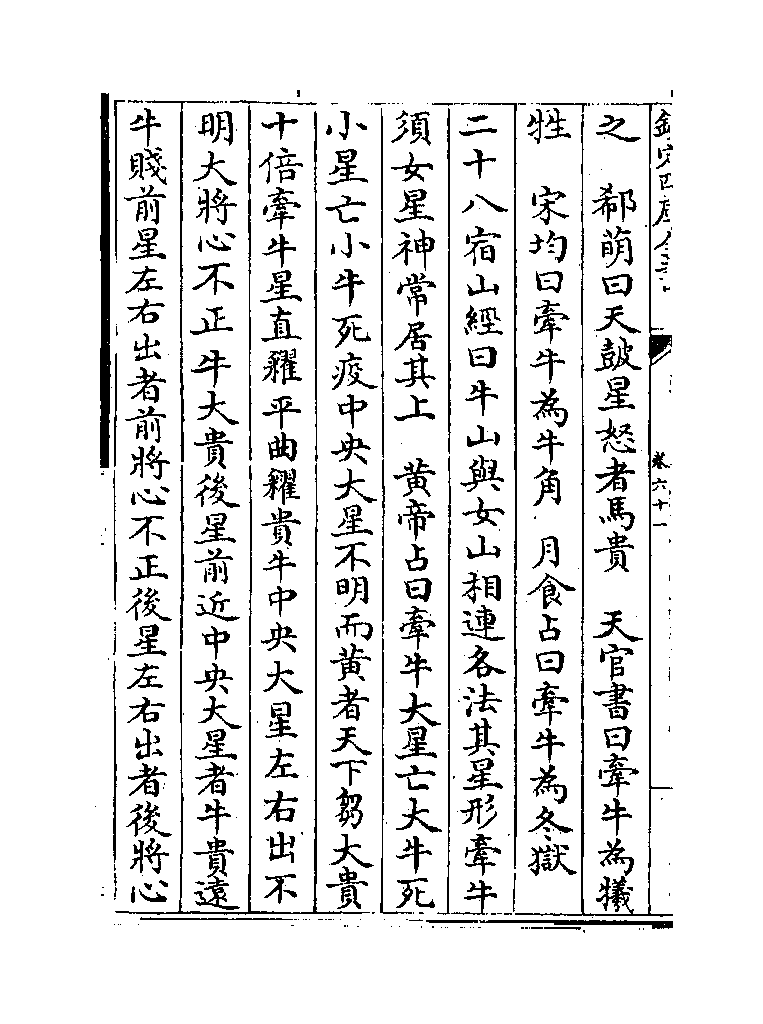 欽定四庫全書
卷六十一
之　郗萌曰天鼓星怒者馬貴　天官書曰牽牛為犧
牲　宋均曰牽牛為牛角　月食占曰牽牛為冬獄
二十八宿山經曰牛山與女山相連各法其星形牽牛
須女星神常居其上　黃帝占曰牽牛大星亡大牛死
小星亡小牛死疫中央大星不明而黃者天下芻大貴
十倍牽牛星直糴平曲糴貴牛中央大星左右出不
明大將心不正牛大貴後星前近中央大星者牛貴遠
牛賤前星左右出者前將心不正後星左右出者後將心